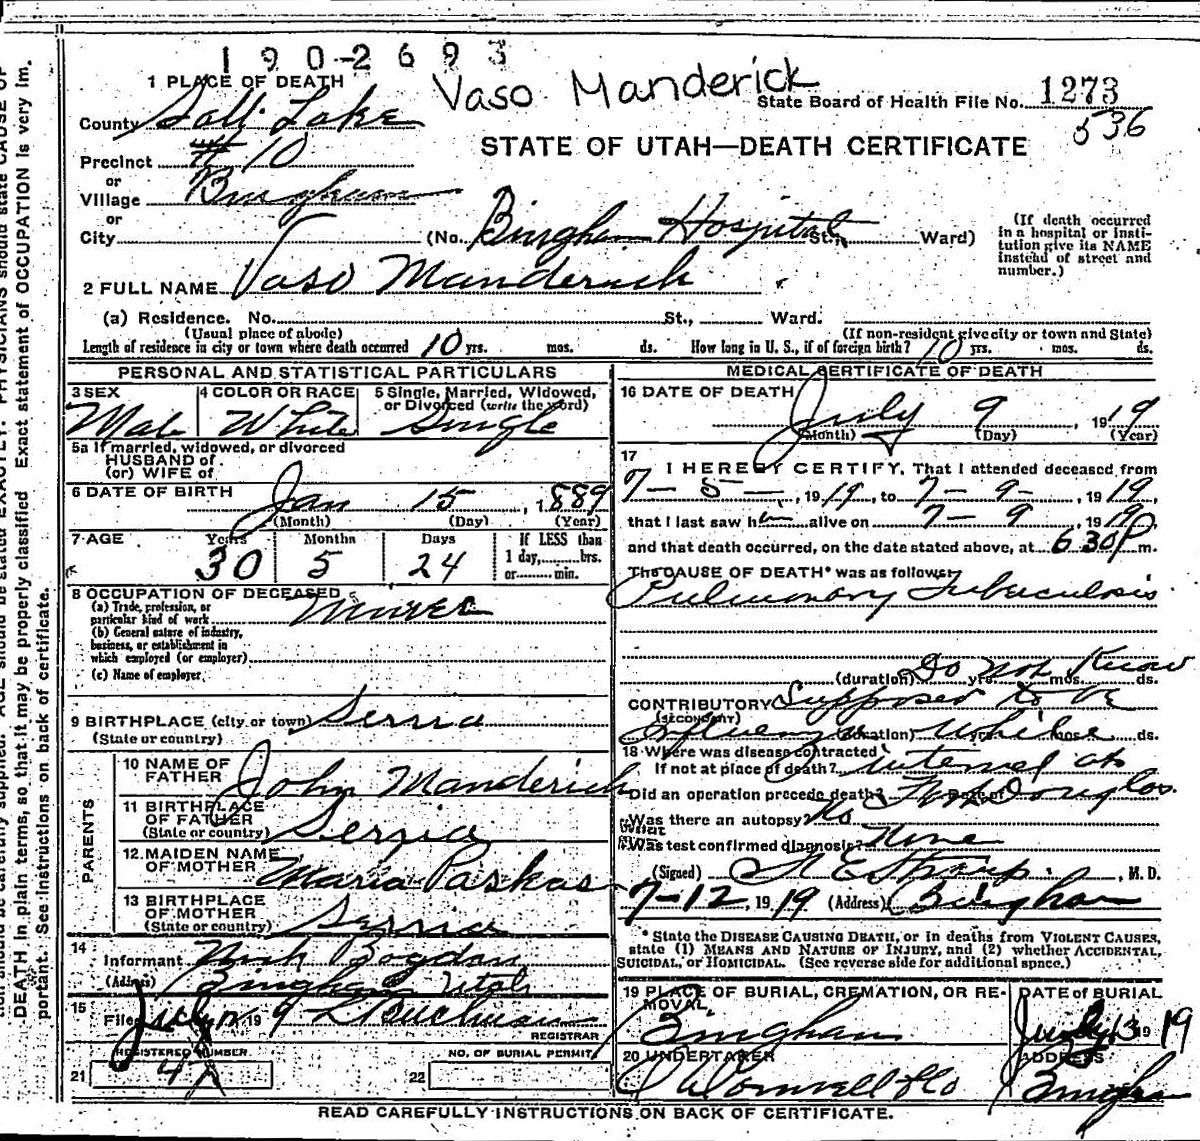 190-2693
Vaso Manderick
1 PLACE OF DEATH
State Board of Health File No. 1273
536
County Salt Lake
STATE OF UTAH—DEATH CERTIFICATE
Precinct # 10
or
Village Bingham
or
City (No. Bingham Hospital St., Ward)
(If death occurred in a hospital or insti-
tution give its NAME instead of street and number.)
2 FULL NAME Vaso Manderich
(a) Residence. No. St., Ward.
(Usual place of abode) (If non-resident give city or town and State)
Length of residence in city or town where death occurred 10 yrs. mos. ds. How long in U. S., if of foreign birth? 10 yrs. mos. ds.
PERSONAL AND STATISTICAL PARTICULARS
3 SEX
Male
4 COLOR OR RACE
White
5 Single, Married, Widowed,
or Divorced (write the word)
Single
5a If married, widowed, or divorced
HUSBAND of
(or) WIFE of
6 DATE OF BIRTH
Jan 15, 1889
(Month) (Day) (Year)
7 AGE Years Months Days If LESS than
1 day, hrs.
or min.
30 5 24
8 OCCUPATION OF DECEASED
(a) Trade, profession, or
particular kind of work Miner
(b) General nature of industry,
business, or establishment in
which employed (or employer)
(c) Name of employer
9 BIRTHPLACE (city or town) Servia
(State or country)
PARENTS
10 NAME OF
FATHER John Manderich
11 BIRTHPLACE
OF FATHER
(State or country) Servia
12 MAIDEN NAME
OF MOTHER Maria Paskas
13 BIRTHPLACE
OF MOTHER
(State or country) Servia
14
Informant Nick Bogdan
(Address) Bingham Utah
15
Filed July 12 19 9
REGISTRAR
REGISTERED NUMBER
21 47
NO. OF BURIAL PERMIT
22
MEDICAL CERTIFICATE OF DEATH
16 DATE OF DEATH
July 9, 1919
(Month) (Day) (Year)
17
I HEREBY CERTIFY, That I attended deceased from
7-5-, 1919, to 7-9-, 1919,
that I last saw him alive on 7-9, 1919
and that death occurred, on the date stated above, at 630 P m.
The CAUSE OF DEATH* was as follows:
Pulmonary Tuberculosis
(duration) Do not Know yrs. mos. ds.
CONTRIBUTORY Supposed to be
(SECONDARY)
Influenza while (duration) yrs. mos. ds.
18 Where was disease contracted
If not at place of death? interned at
Did an operation precede death? Fort Douglas Date of
Was there an autopsy? No
What
Was test confirmed diagnosis? None
(Signed) , M. D.
7-12, 1919 (Address) Bingham
* State the DISEASE CAUSING DEATH, or in deaths from VIOLENT CAUSES,
state (1) MEANS AND NATURE OF INJURY, and (2) whether ACCIDENTAL,
SUICIDAL, or HOMICIDAL. (See reverse side for additional space.)
19 PLACE OF BURIAL, CREMATION, OR RE-
MOVAL
Bingham
DATE of BURIAL
July 13 1919
20 UNDERTAKER
ADDRESS
Bingham
READ CAREFULLY INSTRUCTIONS ON BACK OF CERTIFICATE.
AGE should be stated EXACTLY. PHYSICIANS should state CAUSE OF
DEATH in plain terms, so that it may be properly classified. Exact statement of OCCUPATION is very im-
portant. See instructions on back of certificate.